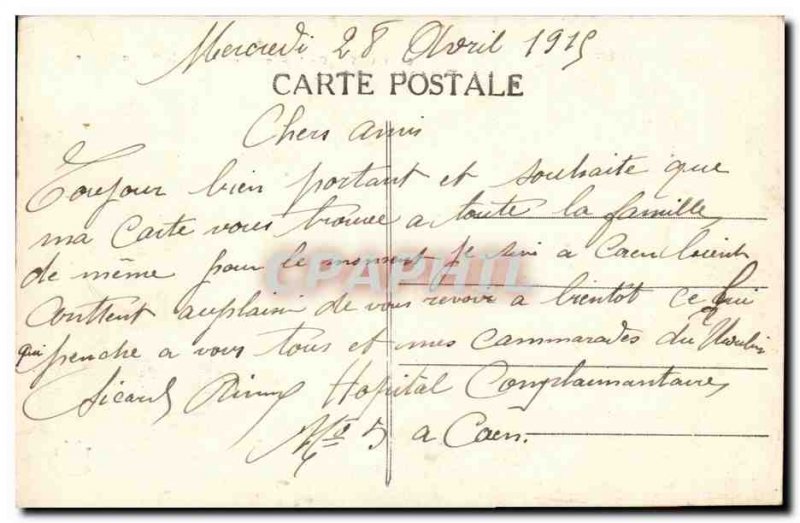 Mercredi 28 Avril 1915
CARTE POSTALE
Chers amis
Toujour bien portant et souhaite que
ma Carte vous trouve a toute la famille
de même pour le moment je sui a Caen bient
Conttent auplaisir de vous revoir a bientôt ce lui
qui penche a vous tous et mes cammarades du
Sicard Rémy Hopital Complaimantaire
No 5 a Caen.
CPAPHIL